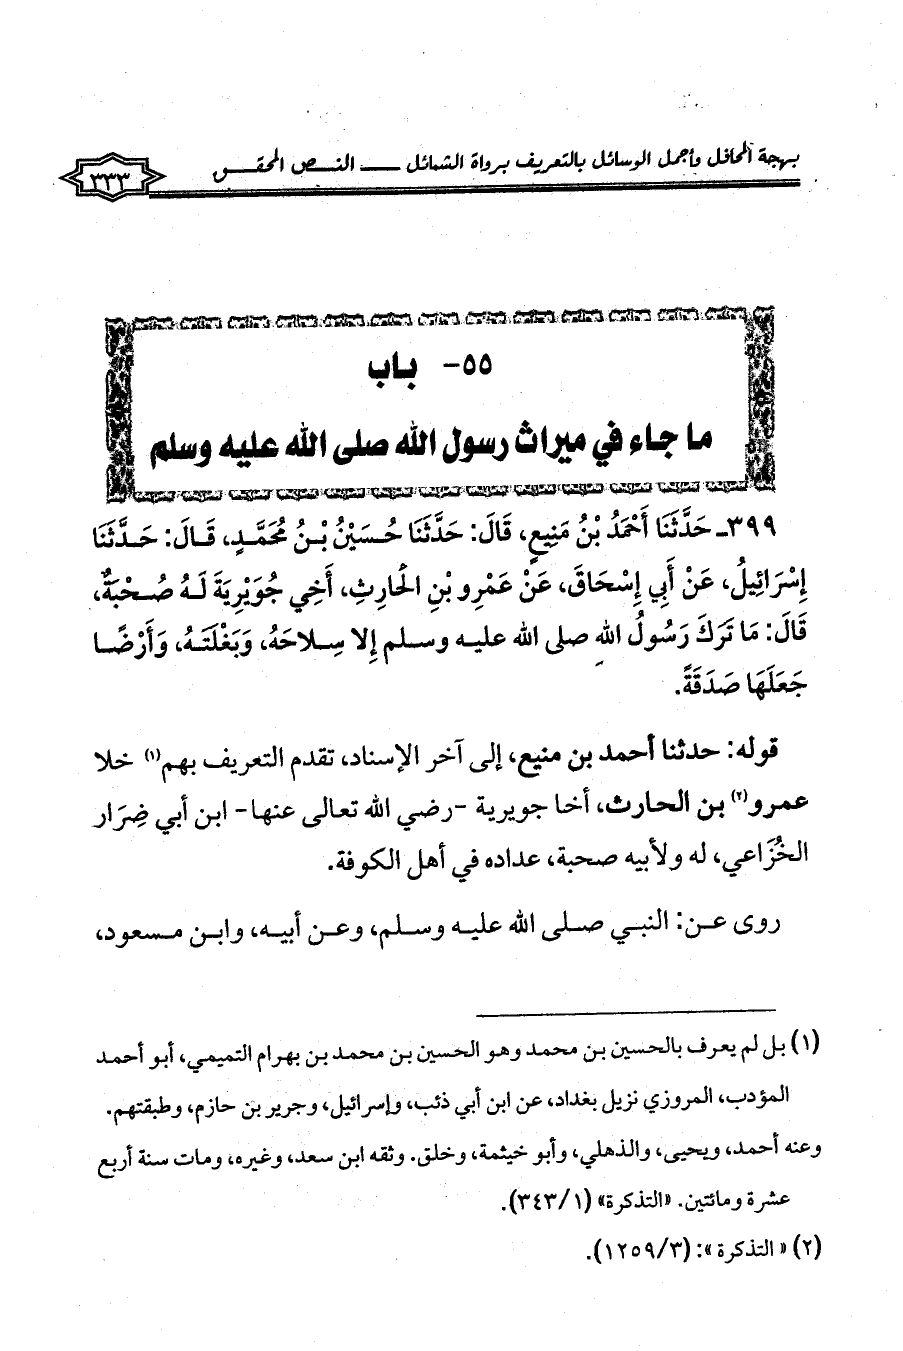 بهجة المحافل وأجمل الوسائل بالتعريف برواة الشمائل ـــ النــص المحقــق
٣٣٣
٥٥- باب
ما جاء في ميراث رسول الله صلى الله عليه وسلم
٣٩٩ـ حَدَّثَنَا أَحْمَدُ بْنُ مَنِيعٍ، قَالَ: حَدَّثَنَا حُسَيْنُ بْنُ مُحَمَّدٍ، قَالَ: حَدَّثَنَا
إِسْرَائِيلُ، عَنْ أَبِي إِسْحَاقَ، عَنْ عَمْرِو بْنِ الْحَارِثِ، أَخِي جُوَيْرِيَةَ لَهُ صُحْبَةٌ،
قَالَ: مَا تَرَكَ رَسُولُ اللهِ صلى الله عليه وسلم إِلا سِلاحَهُ، وَبَغْلَتَهُ، وَأَرْضًا
جَعَلَهَا صَدَقَةً.
قوله: حدثنا أحمد بن منيع، إلى آخر الإسناد، تقدم التعريف بهم(١) خلا
عمرو(٢) بن الحارث، أخا جويرية -رضي الله تعالى عنها- ابن أبي ضِرَار
الخُزَاعي، له ولأبيه صحبة، عداده في أهل الكوفة.
روى عن: النبي صلى الله عليه وسلم، وعن أبيه، وابن مسعود،
(١) بل لم يعرف بالحسين بن محمد وهو الحسين بن محمد بن بهرام التميمي، أبو أحمد
المؤدب، المروزي نزيل بغداد، عن ابن أبي ذئب، وإسرائيل، وجرير بن حازم، وطبقتهم.
وعنه أحمد، ويحيى، والذهلي، وأبو خيثمة، وخلق. وثقه ابن سعد، وغيره، ومات سنة أربع
عشرة ومائتين. «التذكرة» (٣٤٣/١).
(٢) «التذكرة»: (١٢٥٩/٣).